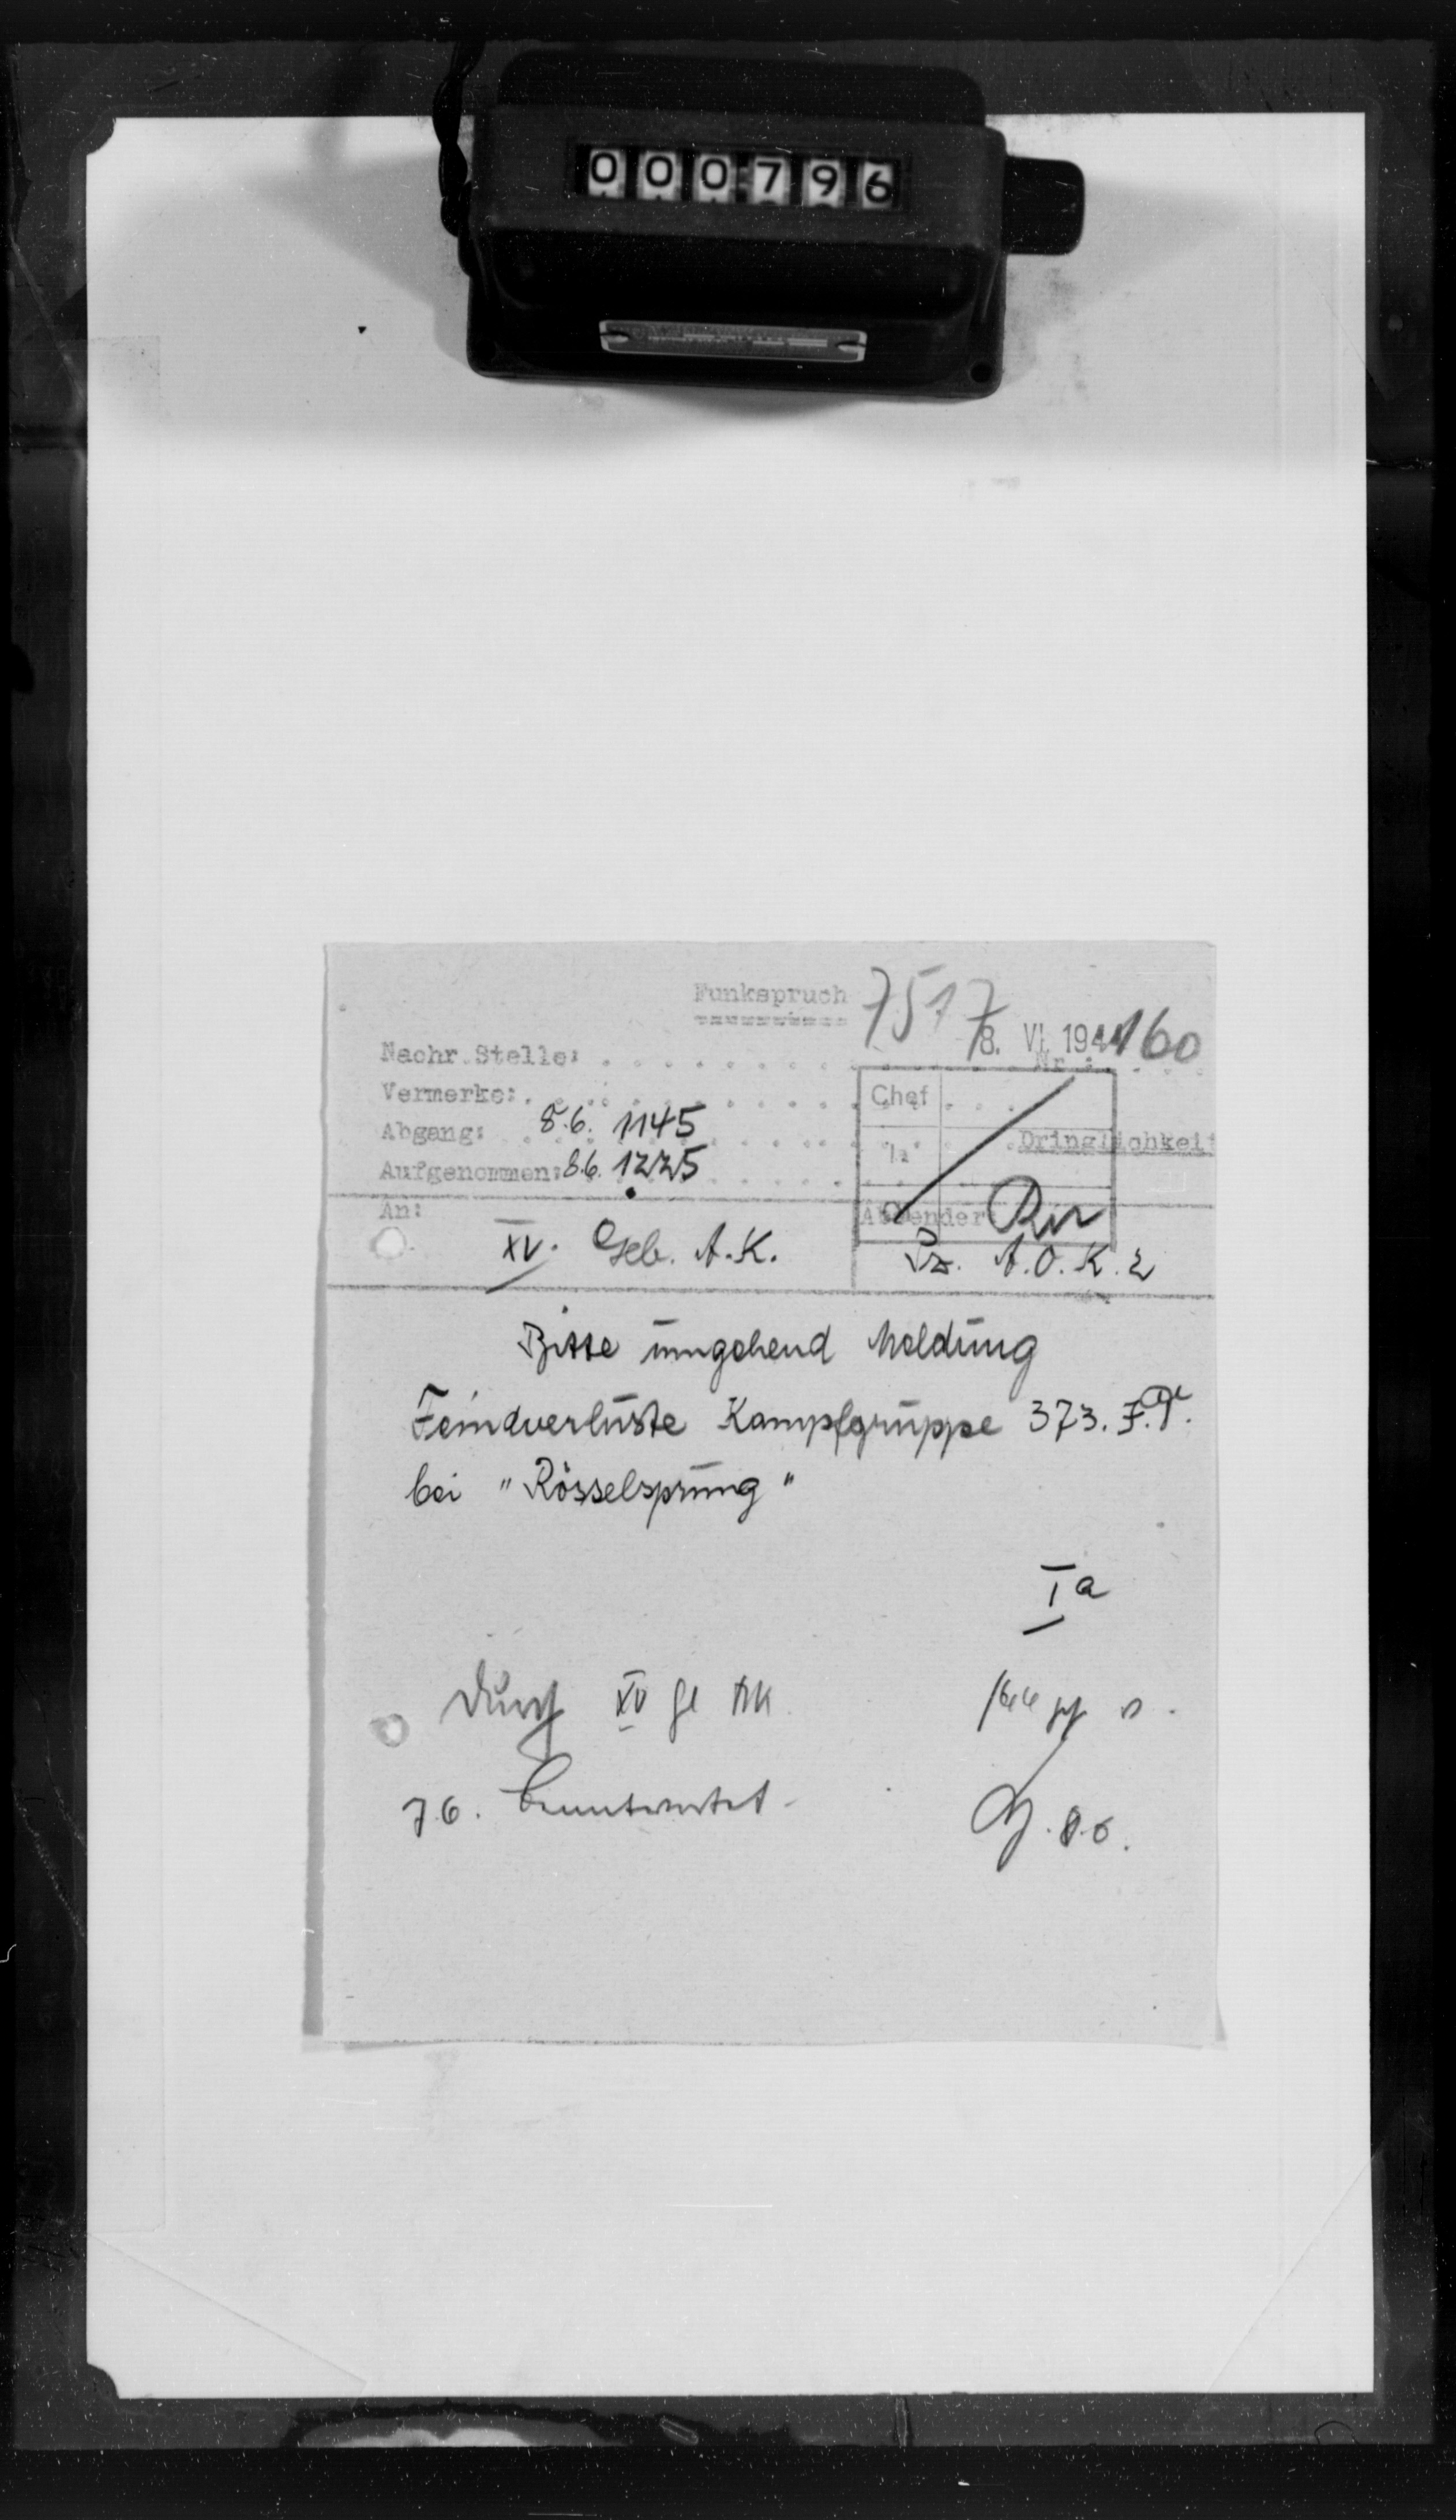 000796
Funkspruch
7517
8. VI. 1944
160
Nachr.Stelle:
Nr.:
Vermerke:
Chef
Abgang: 8.6. 1145
Ia
Dringlichkeit
Aufgenommen: 8.6. 1225
An:
Absender:
XV. Geb. A.K.
Pz. A.O.K. 2
Bitte umgehend Meldung
Feindverluste Kampfgruppe 373. I.D.
bei "Rösselsprung"
Ia
Durch XV Ge AK
7.6. beantwortet.
8.6.